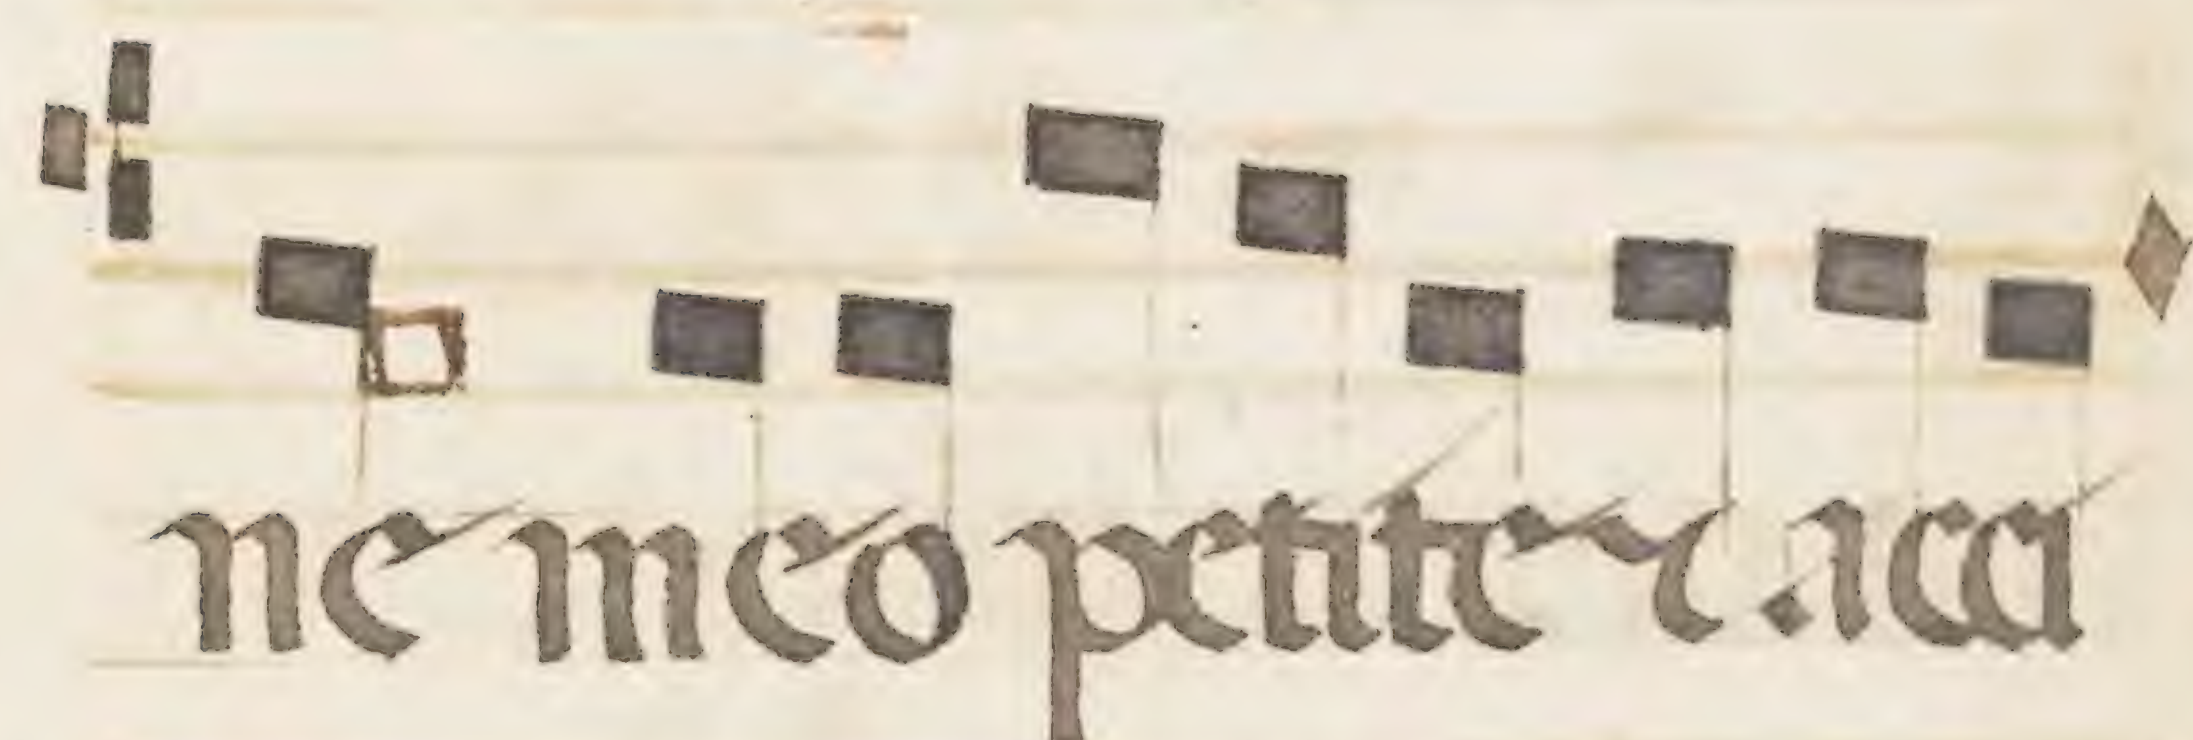 ne meo petite ⁊ acci